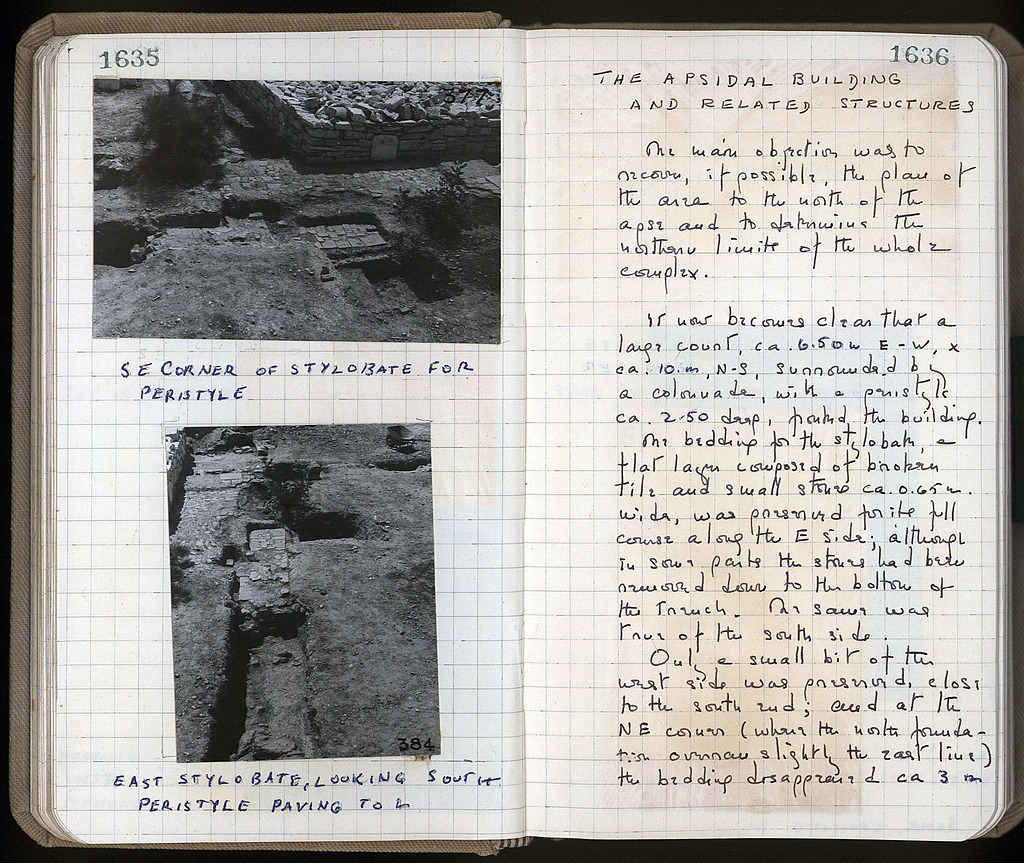 1635
377
SE CORNER OF STYLOBATE FOR
PERISTYLE
384
EAST STYLOBATE, LOOKING SOUTH
PERISTYLE PAVING TO L
1636
THE APSIDAL BUILDING
AND RELATED STRUCTURES
The main objection was to
recover, if possible, the plan of
the area to the north of the
apse and to determine the
northern limits of the whole
complex.
It now becomes clear that a
large court, ca. 6.50m E-W, x
ca. 10.m, N-S, surrounded by
a colonnade, with a peristyle
ca. 2.50 deep, fronted the building.
The bedding for the stylobate, a
flat layer composed of broken
tile and small stones ca. 0.65m.
wide, was preserved for its full
course along the E side; although
in some parts the stones had been
removed down to the bottom of
the trench. The same was
true of the south side.
Only a small bit of the
west side was preserved, close
to the south end; and at the
NE corner (where the north founda-
tion overran slightly the east line)
the bedding disappeared ca 3 m